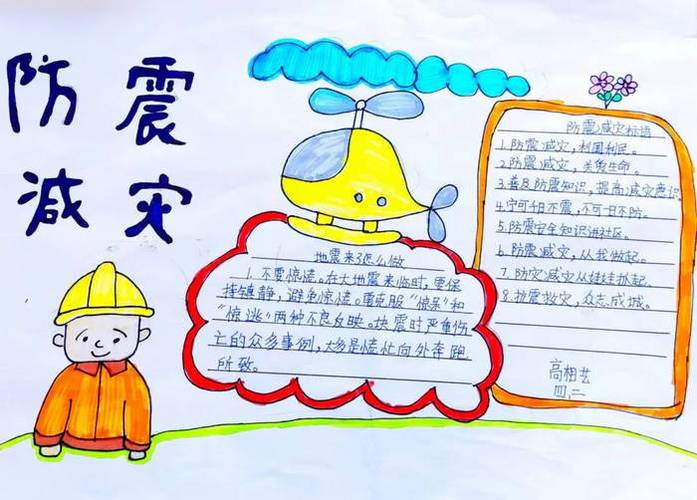 防震
减灾
地震来了怎么做
1. 不要惊慌。在大地震来临时,要保
持镇静,避免惊慌。要克服“惊呆”和
“惊逃”两种不良反映。地震时严重伤
亡的众多事例,大多是慌忙向外奔跑
所致。
防震减灾标语
1.防震减灾,利国利民。
2.防震减灾,关爱生命。
3.普及防震知识,提高减灾意识
4.宁可千日不震,不可一日不防。
5.防震安全知识进社区。
6.防震减灾,从我做起。
7.防灾减灾从娃娃抓起。
8.抗震救灾,众志成城。
高相艺
四、二